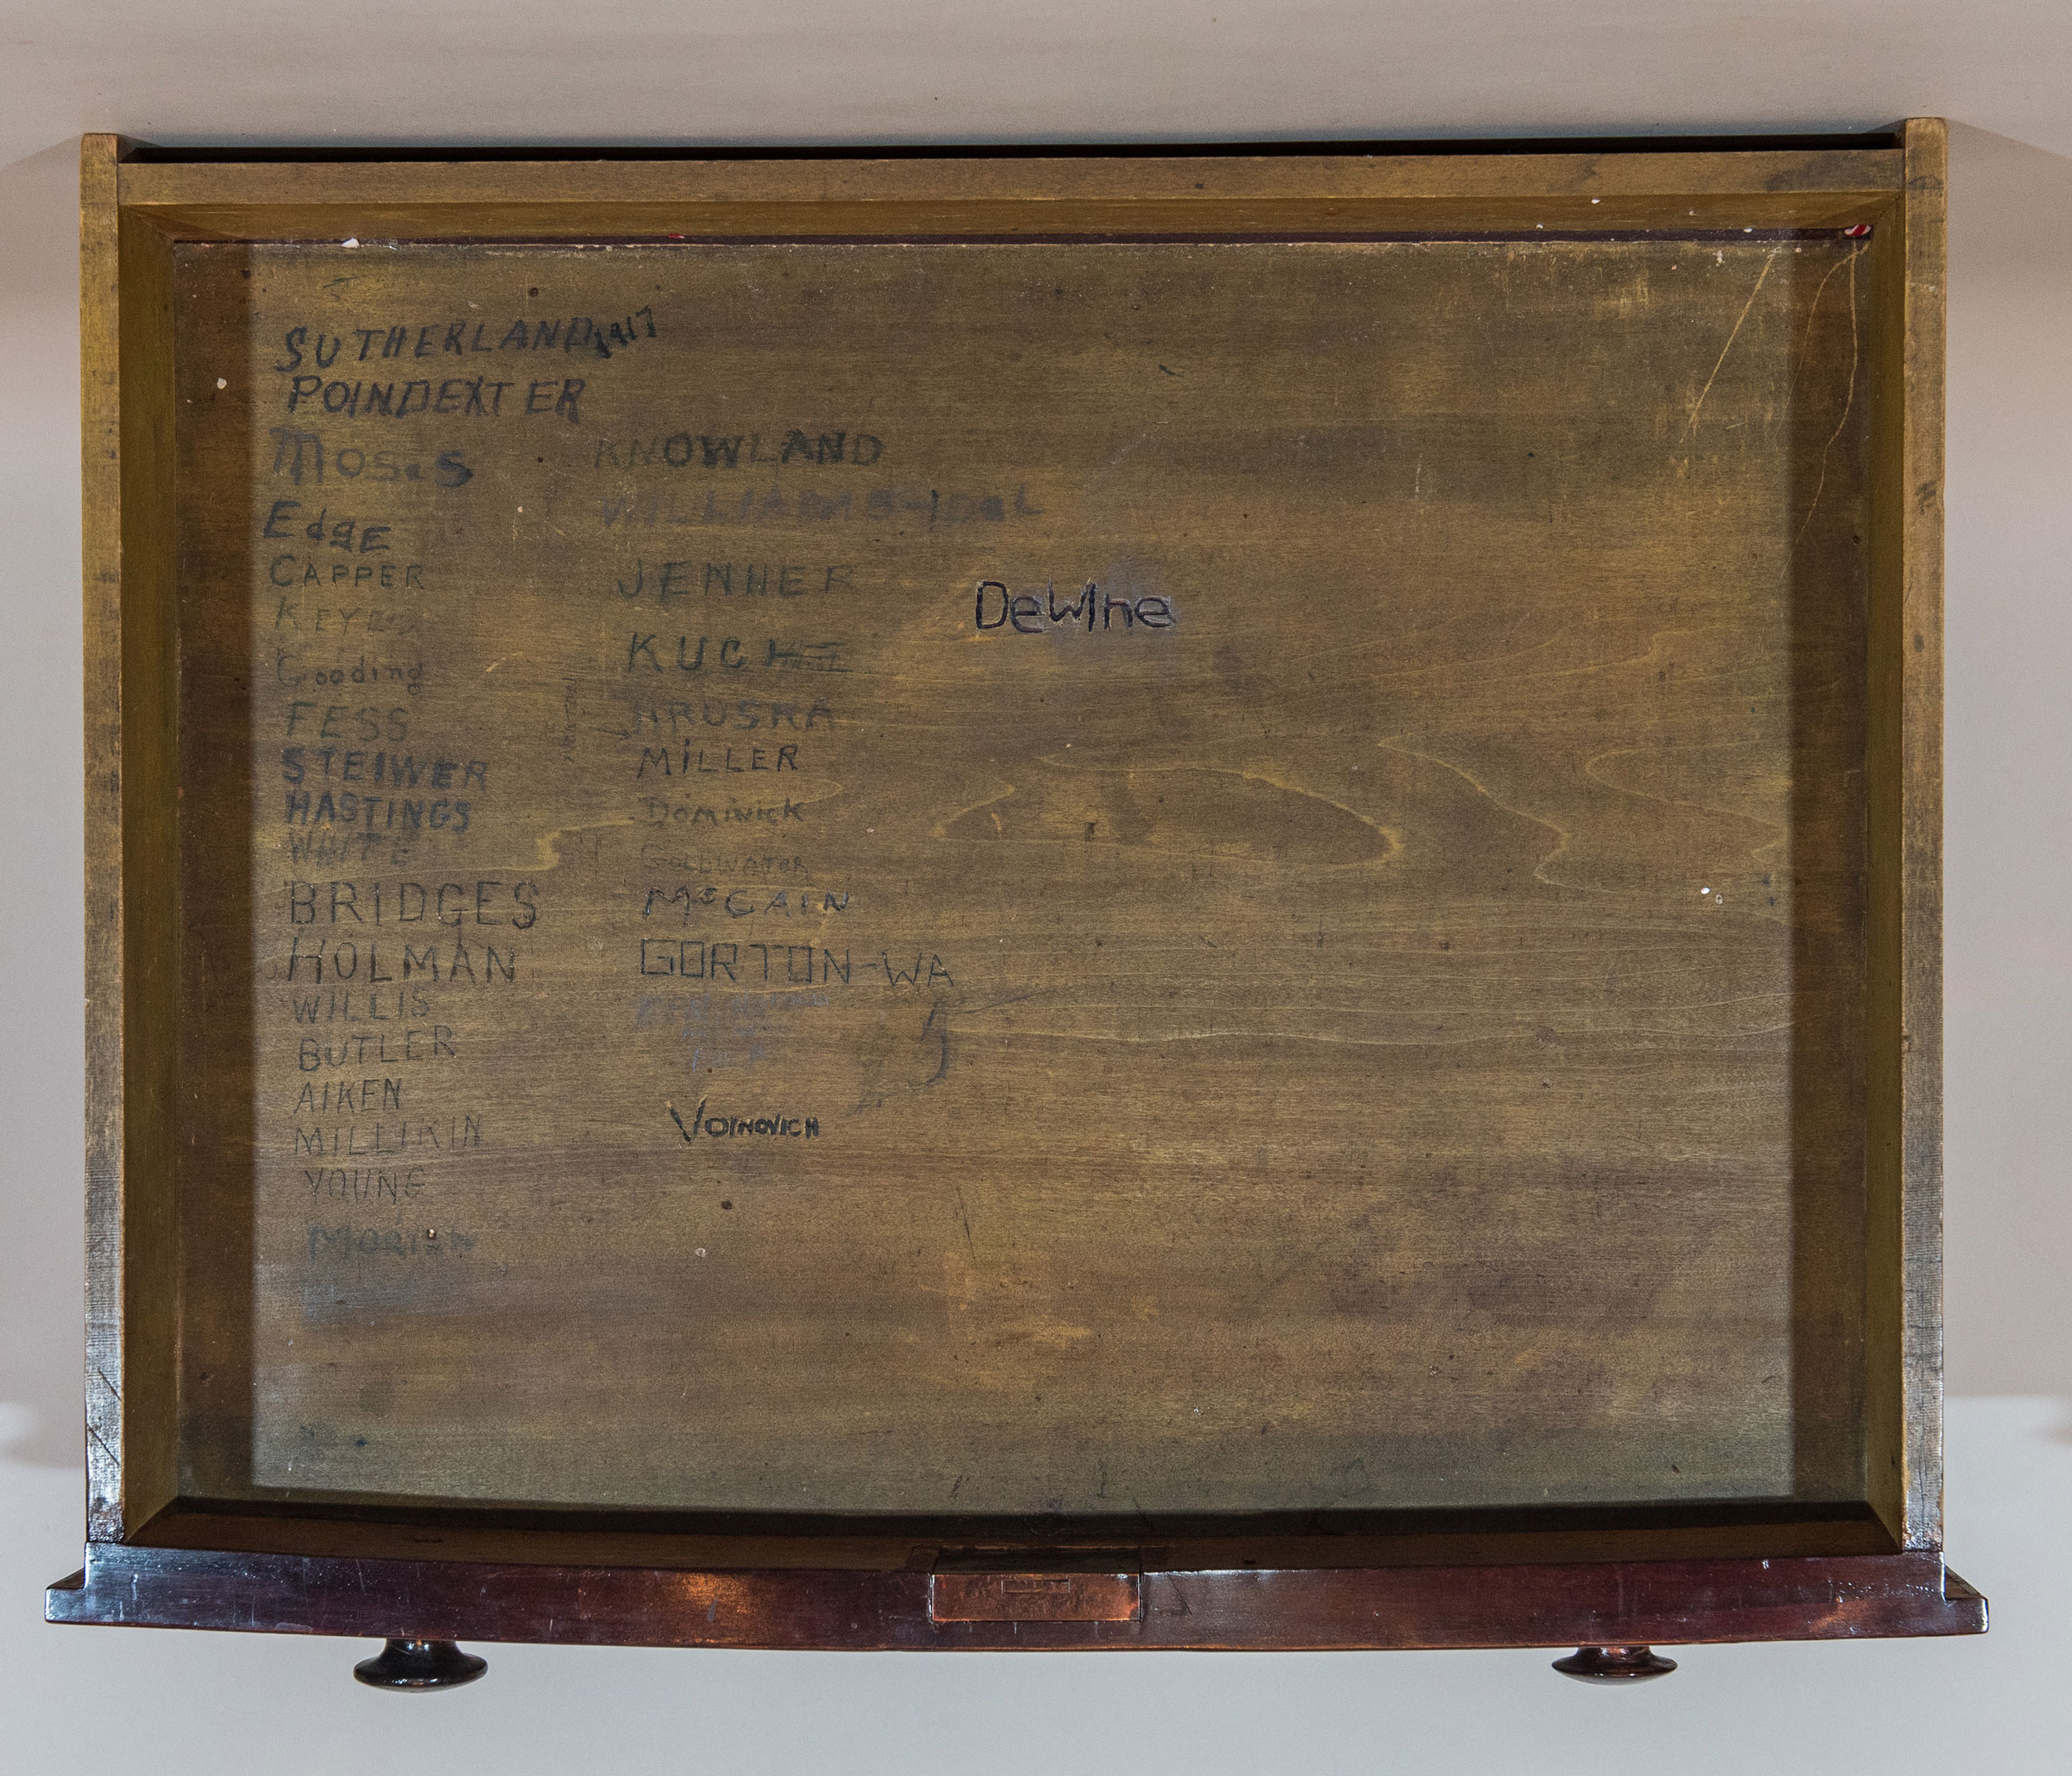 SUTHERLAND 1917
POINDEXTER
Moses
Edge
CAPPER
KEYES
Gooding
FESS
STEIWER
HASTINGS
WAITE
BRIDGES
HOLMAN
WILLIS
BUTLER
AIKEN
MILLIKIN
YOUNG
MORTON
KNOWLAND
WILLIAMS-DEL
JENNER
KUCHEL
HRUSKA
MiLLER
DOMiNicK
GOLDWATER
McCAIN
GORTON-WA
VOINOVICH
DeWIne